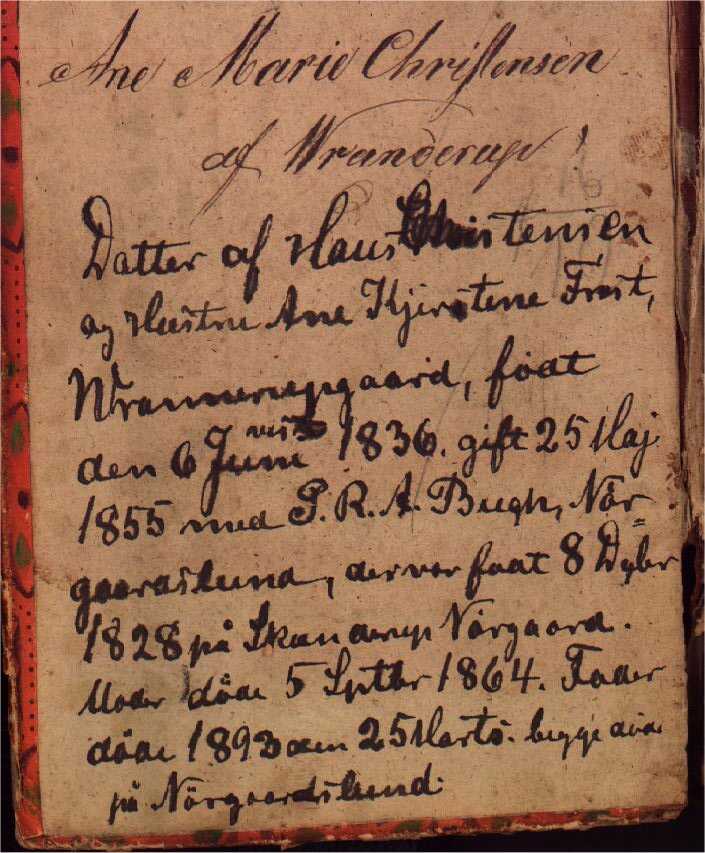 Ane Marie Christensen
af Wranderup!
Datter af Hans Christensen
og Hustru Ane Kjerstene Frost,
Wrannerupgaard, foat
den 6 Juni 1836. gift 25 Maj
1855 med P. R. A. Bugh, Nör=
gaardslund, der var foat 8 Dcbr
1828 på Skanderup Nörgaard.
Moder döde 5 Sptbr 1864. Fader
döde 1893 den 25 Marts. begge döde
på Nörgaardslund.